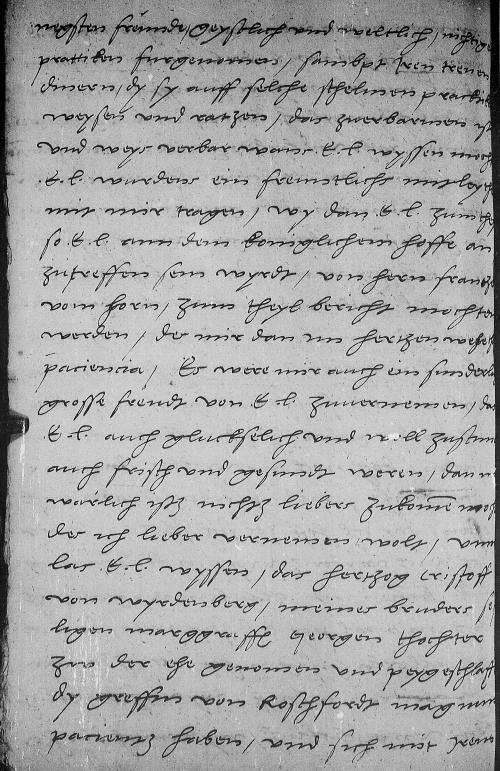 negsten freunde / geystlich und weltlich / nichtige
prattiken furgenomen / sambpt iren treuen
dinern / dy sy auff solche schelmen prackti
weysen und ratzen / das zuerbarmen ist
und weys verbar wans E. l. wyssen moch
E. l. wurdens ein freuntlichs mitleyd
mit mir tragen / wy dan E. l. zum the
so E. l. ann dem koniglichem hoffe an
zutreffen sein wyrdt / von hern frantz
vom horn / zum theyl bericht mochten
werden / des mir dan im hertzen wehe
paciencia / Es were mir auch ein sunderli
grosse freudt von E. l. zuuernemen / das
E. l. auch gluckselich und woll zustun
auch frisch und gesundt weren / dan
warlich istz nichtz liebers zukome moch
des ich lieber vernemen wolt / und
las E. l. wyssen / das hertzog cristoff
von wyrdenberg / meines bruders se
ligen marggraffz Georgen thochter
zu der ehe genomen und peygeschlaff
dy greffin von Roschfordt mag nun
pacientz haben / und sich mit irem